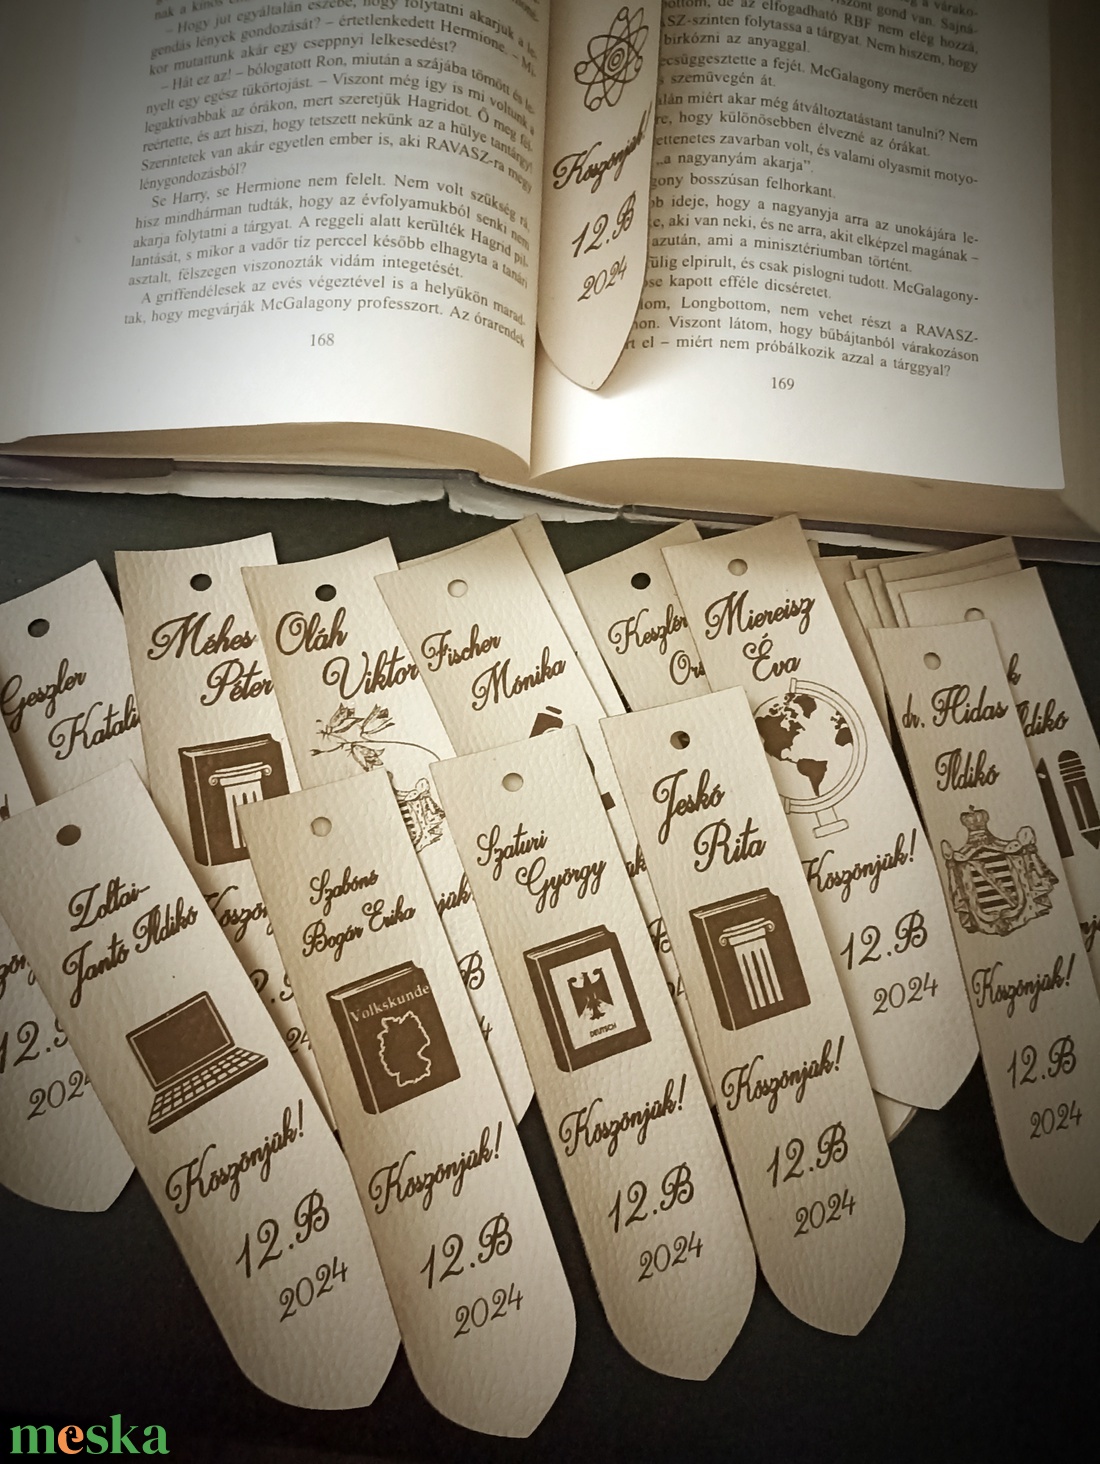 – Hogy jut egyáltalán eszébe, hogy folytatni akarjuk a
gendás lények gondozását? – értetlenkedett Hermione. –
kor mutattunk akár egy cseppnyi lelkesedést?
– Hát ez az! – bólogatott Ron, miután a szájába tömött és le-
nyelt egy egész tükörtojást. – Viszont még így is mi voltunk a
legaktívabbak az órákon, mert szeretjük Hagridot. Ő meg fél-
reértette, és azt hiszi, hogy tetszett nekünk az a hülye tantárgy!
Szerintetek van akár egyetlen ember is, aki RAVASZ-ra megy
lénygondozásból?
Se Harry, se Hermione nem felelt. Nem volt szükség rá,
hisz mindhárman tudták, hogy az évfolyamukból senki nem
akarja folytatni a tárgyat. A reggeli alatt kerülték Hagrid pil-
lantását, s mikor a vadőr tíz perccel később elhagyta a tanári
asztalt, félszegen viszonozták vidám integetését.
A griffendélesek az evés végeztével is a helyükön marad-
tak, hogy megvárják McGalagony professzort. Az órarendek
168
bottom, de az elfogadható RBF nem elég hozzá,
ASZ-szinten folytassa a tárgyat. Nem hiszem, hogy
birkózni az anyaggal.
csüggesztette a fejét. McGalagony merően nézett
s szemüvegén át.
alán miért akar még átváltoztatástant tanulni? Nem
re, hogy különösebben élvezné az órákat.
ettenetes zavarban volt, és valami olyasmit motyo-
„a nagyanyám akarja”.
gony bosszúsan felhorkant.
bb ideje, hogy a nagyanyja arra az unokájára le-
e, aki van neki, és ne arra, akit elképzel magának –
azután, ami a minisztériumban történt.
fülig elpirult, és csak pislogni tudott. McGalagony-
se kapott efféle dicséretet.
tom, Longbottom, nem vehet részt a RAVASZ-
on. Viszont látom, hogy bűbájtanból várakozáson
rt el – miért nem próbálkozik azzal a tárggyal?
169
Köszönjük!
12.B
2024
Geszler
Katali
Méhes
Péter
Oláh
Viktor
Fischer
Mónika
Keszler
Ors
Miereisz
Éva
Köszönjük!
12.B
2024
dr. Hidas
Ildikó
Köszönjük!
12.B
2024
Ildikó
Zoltai-
Jantó Ildikó
Köszönjük!
12.B
2024
Szabóné
Bogár Erika
Volkskunde
Köszönjük!
12.B
2024
Szaturi
György
DEUTSCH
Köszönjük!
12.B
2024
Jeskó
Rita
Köszönjük!
12.B
2024
meska